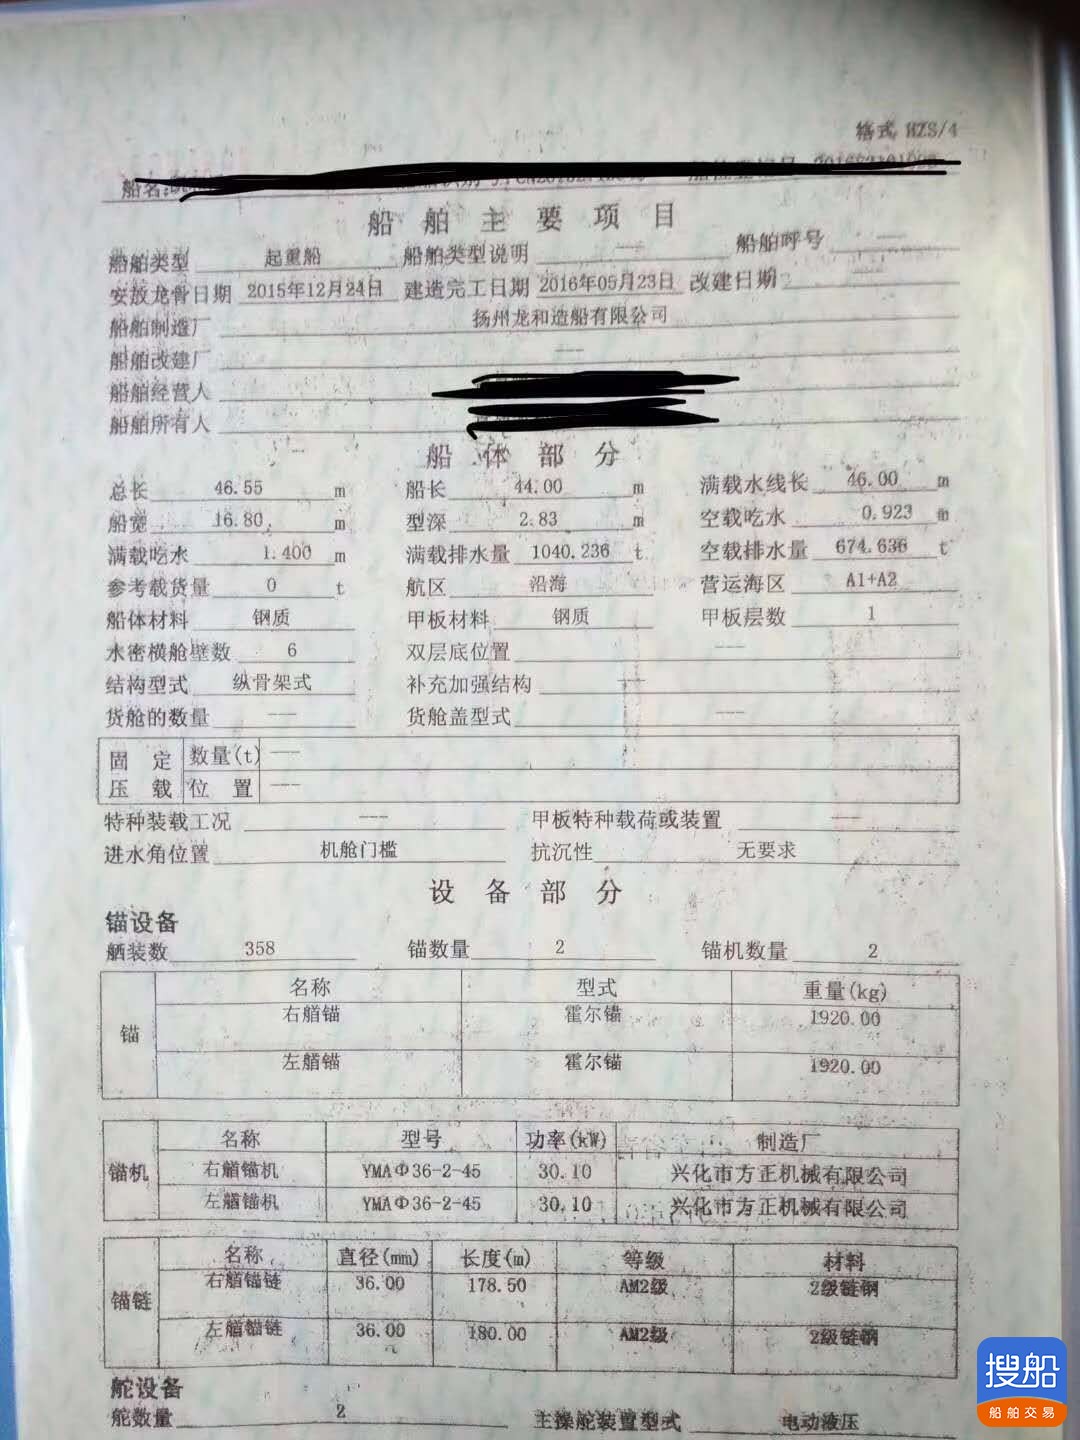 格式 HZS/4
船名:
船舶主要项目
船舶类型 起重船 船舶类型说明 --- 船舶呼号 ---
安放龙骨日期 2015年12月24日 建造完工日期 2016年05月23日 改建日期
船舶制造厂 扬州龙和造船有限公司
船舶改建厂 ---
船舶经营人
船舶所有人
船体部分
总长 46.55 m 船长 44.00 m 满载水线长 46.00 m
船宽 16.80 m 型深 2.83 m 空载吃水 0.923 m
满载吃水 1.400 m 满载排水量 1040.236 t 空载排水量 674.636 t
参考载货量 0 t 航区 沿海 营运海区 A1+A2
船体材料 钢质 甲板材料 钢质 甲板层数 1
水密横舱壁数 6 双层底位置 ---
结构型式 纵骨架式 补充加强结构 ---
货舱的数量 --- 货舱盖型式 ---
固定压载 数量(t) ---
位置 ---
特种装载工况 --- 甲板特种载荷或装置 ---
进水角位置 机舱门槛 抗沉性 无要求
设备部分
锚设备
舾装数 358 锚数量 2 锚机数量 2
锚 名称 型式 重量(kg)
右艏锚 霍尔锚 1920.00
左艏锚 霍尔锚 1920.00
锚机 名称 型号 功率(kW) 制造厂
右艏锚机 YMAΦ36-2-45 30.10 兴化市方正机械有限公司
左艏锚机 YMAΦ36-2-45 30.10 兴化市方正机械有限公司
锚链 名称 直径(mm) 长度(m) 等级 材料
右艏锚链 36.00 178.50 AM2级 2级链钢
左艏锚链 36.00 180.00 AM2级 2级链钢
舵设备
舵数量 2 主操舵装置型式 电动液压
搜船
船舶交易